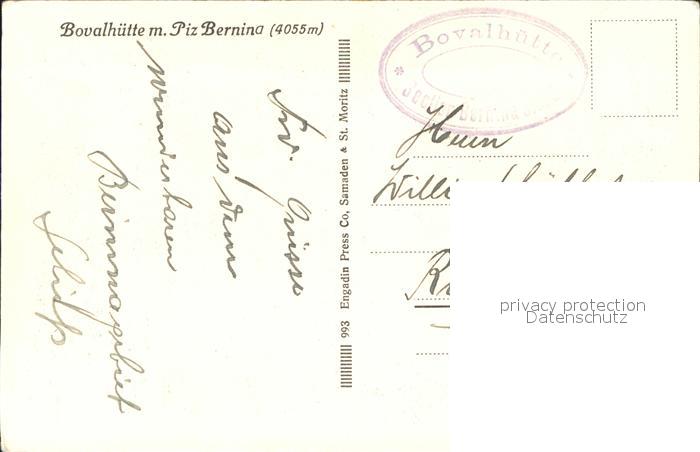 Bovalhütte m. Piz Bernina (4055m)
Frd. Grüsse
aus dem
wunderbaren
Berninagebiet
993 Engadin Press Co, Samaden & St. Moritz
* Bovalhütte
Bernina
Herrn
Willi
privacy protection
Datenschutz